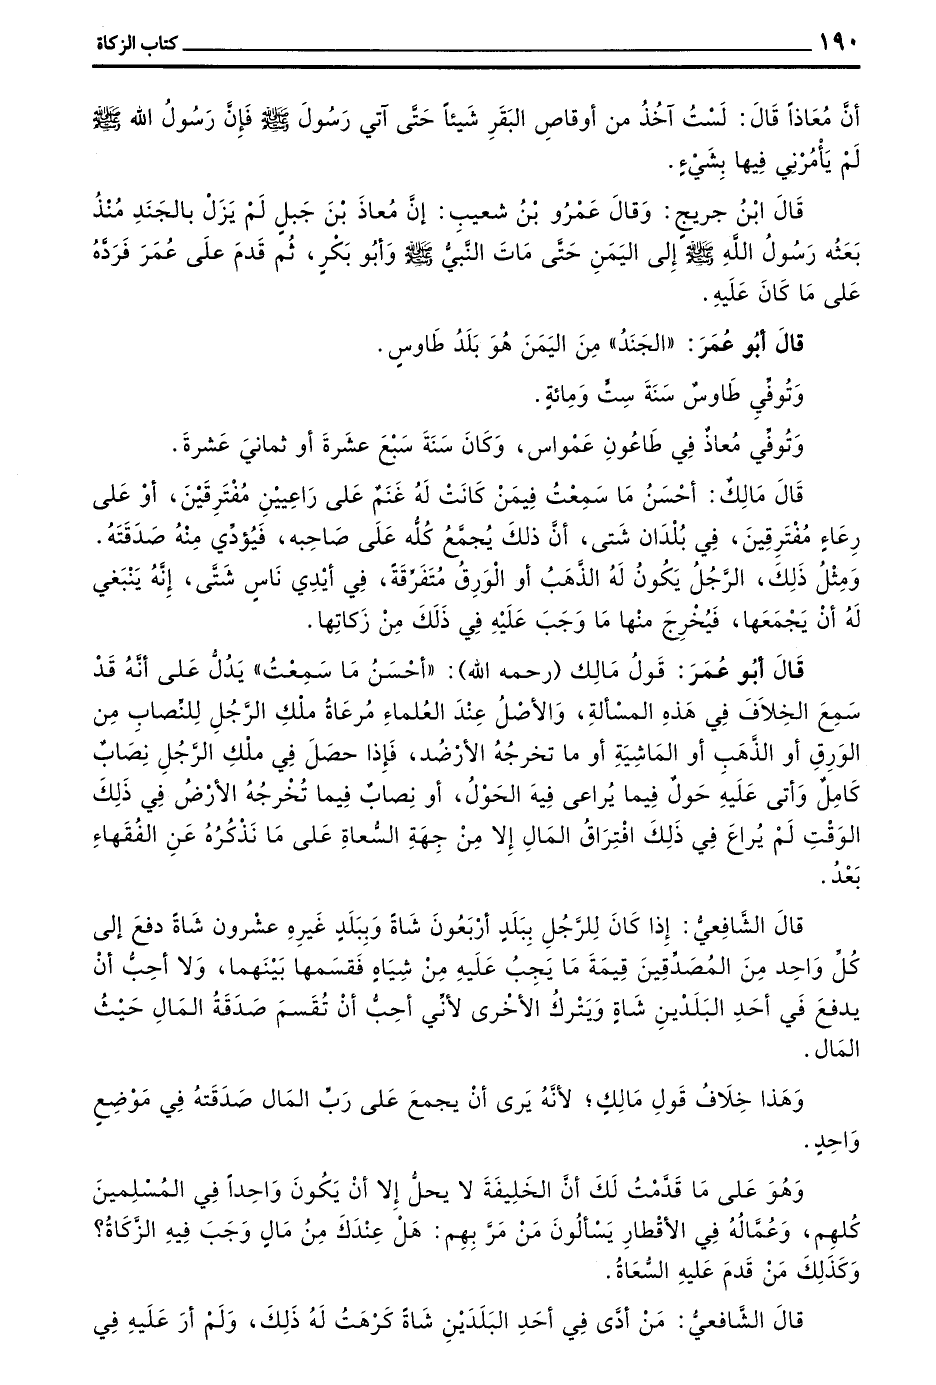 ١٩٠ كتاب الزكاة
أنَّ مُعَاذاً قَالَ: لَسْتُ آخُذُ من أوقاصِ البَقَرِ شَيئاً حَتَّى آتي رَسُولَ ﷺ فَإِنَّ رَسُولُ الله ﷺ
لَمْ يَأْمُرْنِي فِيها بِشَيْءٍ.
قَالَ ابْنُ جريجٍ: وَقالَ عَمْرُو بْنُ شعيبِ: إنَّ مُعاذَ بْنَ جَبلٍ لَمْ يَزَلْ بالجَنَدِ مُنْذُ
بَعَثَه رَسُولُ اللَّهِ ﷺ إِلى اليَمَنِ حَتَّى مَاتَ النَّبيُّ ﷺ وَأبُو بَكْرٍ، ثُم قَدمَ على عُمَرَ فَرَدَّهُ
عَلى مَا كَانَ عَلَيهِ.
قالَ أبُو عُمَرَ: «الجَنَدُ» مِنَ اليَمَنَ هُوَ بَلَدُ طَاوسٍ.
وَتُوفِّي طَاوسٌ سَنَةَ سِتٍّ وَمِائةٍ.
وَتُوفِّي مُعاذٌ فِي طَاعُونِ عَمْواس، وَكَانَ سَنَةَ سَبْعَ عشرةَ أو ثمانيَ عَشرةَ.
قَالَ مَالِكٌ: أحْسَنُ مَا سَمِعْتُ فِيمَنْ كَانَتْ لَهُ غَنَمٌ عَلى رَاعِيينِ مُفْتَرِقَيْنَ، أوْ عَلى
رِعَاءٍ مُفْتَرِقِينَ، فِي بُلْدَان شَتى، أنَّ ذلكَ يُجمَّعُ كُلُّه عَلَى صَاحِبه، فَيُؤدِّي مِنْهُ صَدَقَتَهُ.
وَمِثْلُ ذَلِكَ، الرَّجُلُ يَكُونُ لَهُ الذَّهَبُ أو الْوَرِقُ مُتَفَرِّقَةً، فِي أيْدِي نَاسٍ شَتَّى، إنَّهُ يَنْبَغي
لَهُ أنْ يَجْمَعَها، فَيُخْرِجَ منْها مَا وَجَبَ عَلَيْهِ فِي ذَلَكَ مِنْ زَكاتِها.
قَالَ أبُو عُمَرَ: قَولُ مَالِك (رحمه الله): «أحْسَنُ مَا سَمِعْتُ» يَدُلُّ عَلى أنَّهُ قَدْ
سَمِعَ الخِلاَفَ فِي هَذهِ المسْألةِ، وَالأصْلُ عِنْدَ العُلماءِ مُرعَاةُ ملْكِ الرَّجُلِ لِلنِّصابِ مِن
الوَرِقِ أو الذَّهَبِ أو المَاشِيَةِ أو ما تخرجُهُ الأرْضُد، فَإِذا حصَلَ فِي ملْكِ الرَّجُلِ نِصَابٌ
كَامِلٌ وَأتى عَلَيهِ حَولٌ فيما يُراعى فِيهَ الحَوْلُ، أو نِصابٌ فِيما تُخْرجُهُ الأرْضُ فِي ذَلِكَ
الوَقْتِ لَمْ يُراعَ فِي ذَلِكَ افْتِراقُ المَالِ إِلا مِنْ جِهَةِ السُّعاةِ عَلى مَا نَذْكُرُهُ عَنِ الفُقَهاءِ
بَعْدُ.
قالَ الشَّافِعيُّ: إِذا كَانَ لِلرَّجُلِ بِبَلَدٍ أرْبَعُونَ شَاةً وَبِبَلَدٍ غَيرِهِ عشْرون شَاةً دفعَ إلى
كُلِّ وَاحِد مِنَ المُصَدِّقِينَ قِيمَةَ مَا يَجِبُ عَلَيهِ مِنْ شِيَاهٍ فَقسَمها بَيْنَهما، وَلا أحِبُّ أنْ
يدفعَ فَي أحَدِ البَلَدَينِ شَاةٍ وَيَتْركُ الأخْرى لأنِّي أحِبُّ أنْ تُقَسمَ صَدَقَةُ المَالِ حَيْثُ
المَال.
وَهَذا خِلَافُ قَولِ مَالِكٍ؛ لأنَّهُ يَرى أنْ يجمعَ عَلى رَبِّ المَال صَدَقَتهُ فِي مَوْضِعٍ
وَاحِدٍ.
وَهُوَ عَلى مَا قَدَّمْتُ لَكَ أنَّ الخَلِيفَةَ لا يحلُّ إِلا أنْ يَكُونَ وَاحِداً فِي المُسْلِمينَ
كُلهِم، وَعُمَّالُهُ فِي الأقْطارِ يَسْألُونَ مَنْ مَرَّ بِهِم: هَلْ عِنْدَكَ مِنُ مَالٍ وَجَبَ فيهِ الزَّكَاةُ؟
وَكَذَلِكَ مَنْ قَدمَ عَليهِ السُّعَاةُ.
قالَ الشَّافعيُّ: مَنْ أدَّى فِي أحَدِ البَلَدَيْنِ شَاةً كَرْهَتُ لَهُ ذَلِكَ، وَلَمْ أرَ عَلَيهِ فِي